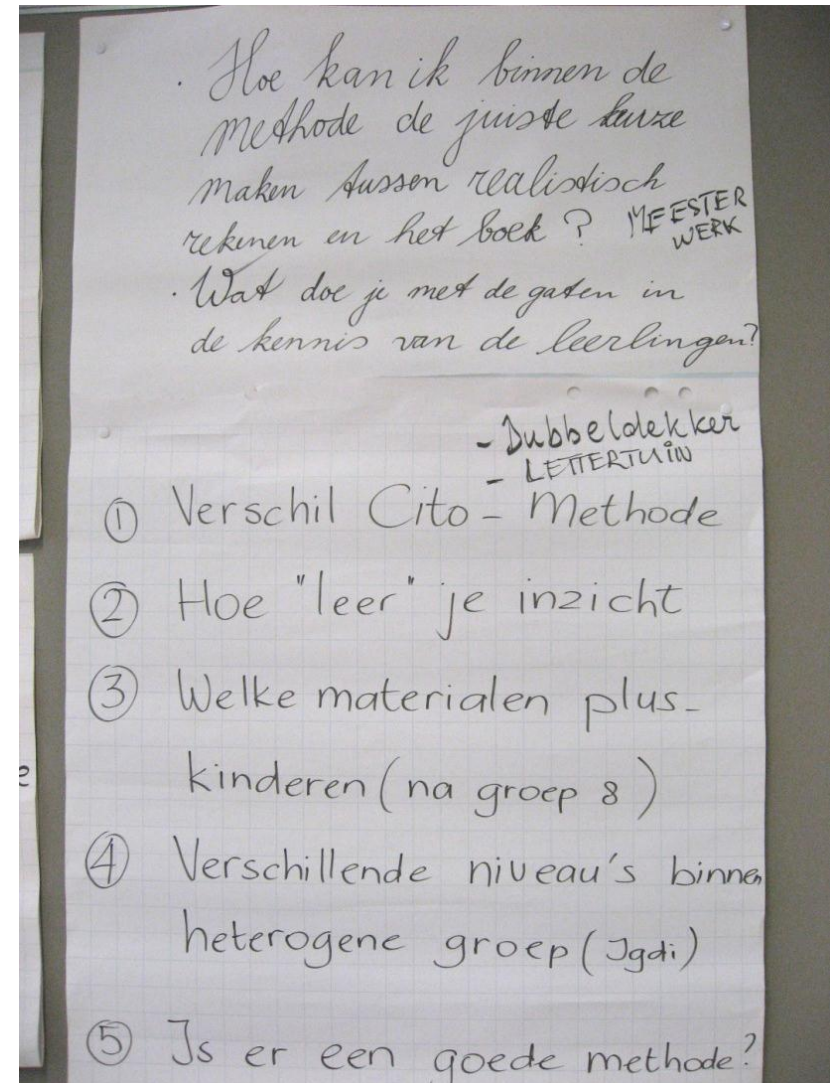 · Hoe kan ik binnen de
methode de juiste keuze
maken tussen realistisch
rekenen en het boek ? MEESTER
WERK
· Wat doe je met de gaten in
de kennis van de leerlingen?
- Dubbeldekker
- LETTERTUIN
① Verschil Cito - Methode
② Hoe "leer" je inzicht
③ Welke materialen plus-
kinderen (na groep 8)
④ Verschillende niveau's binnen
heterogene groep (Igdi)
⑤ Is er een goede methode?
e